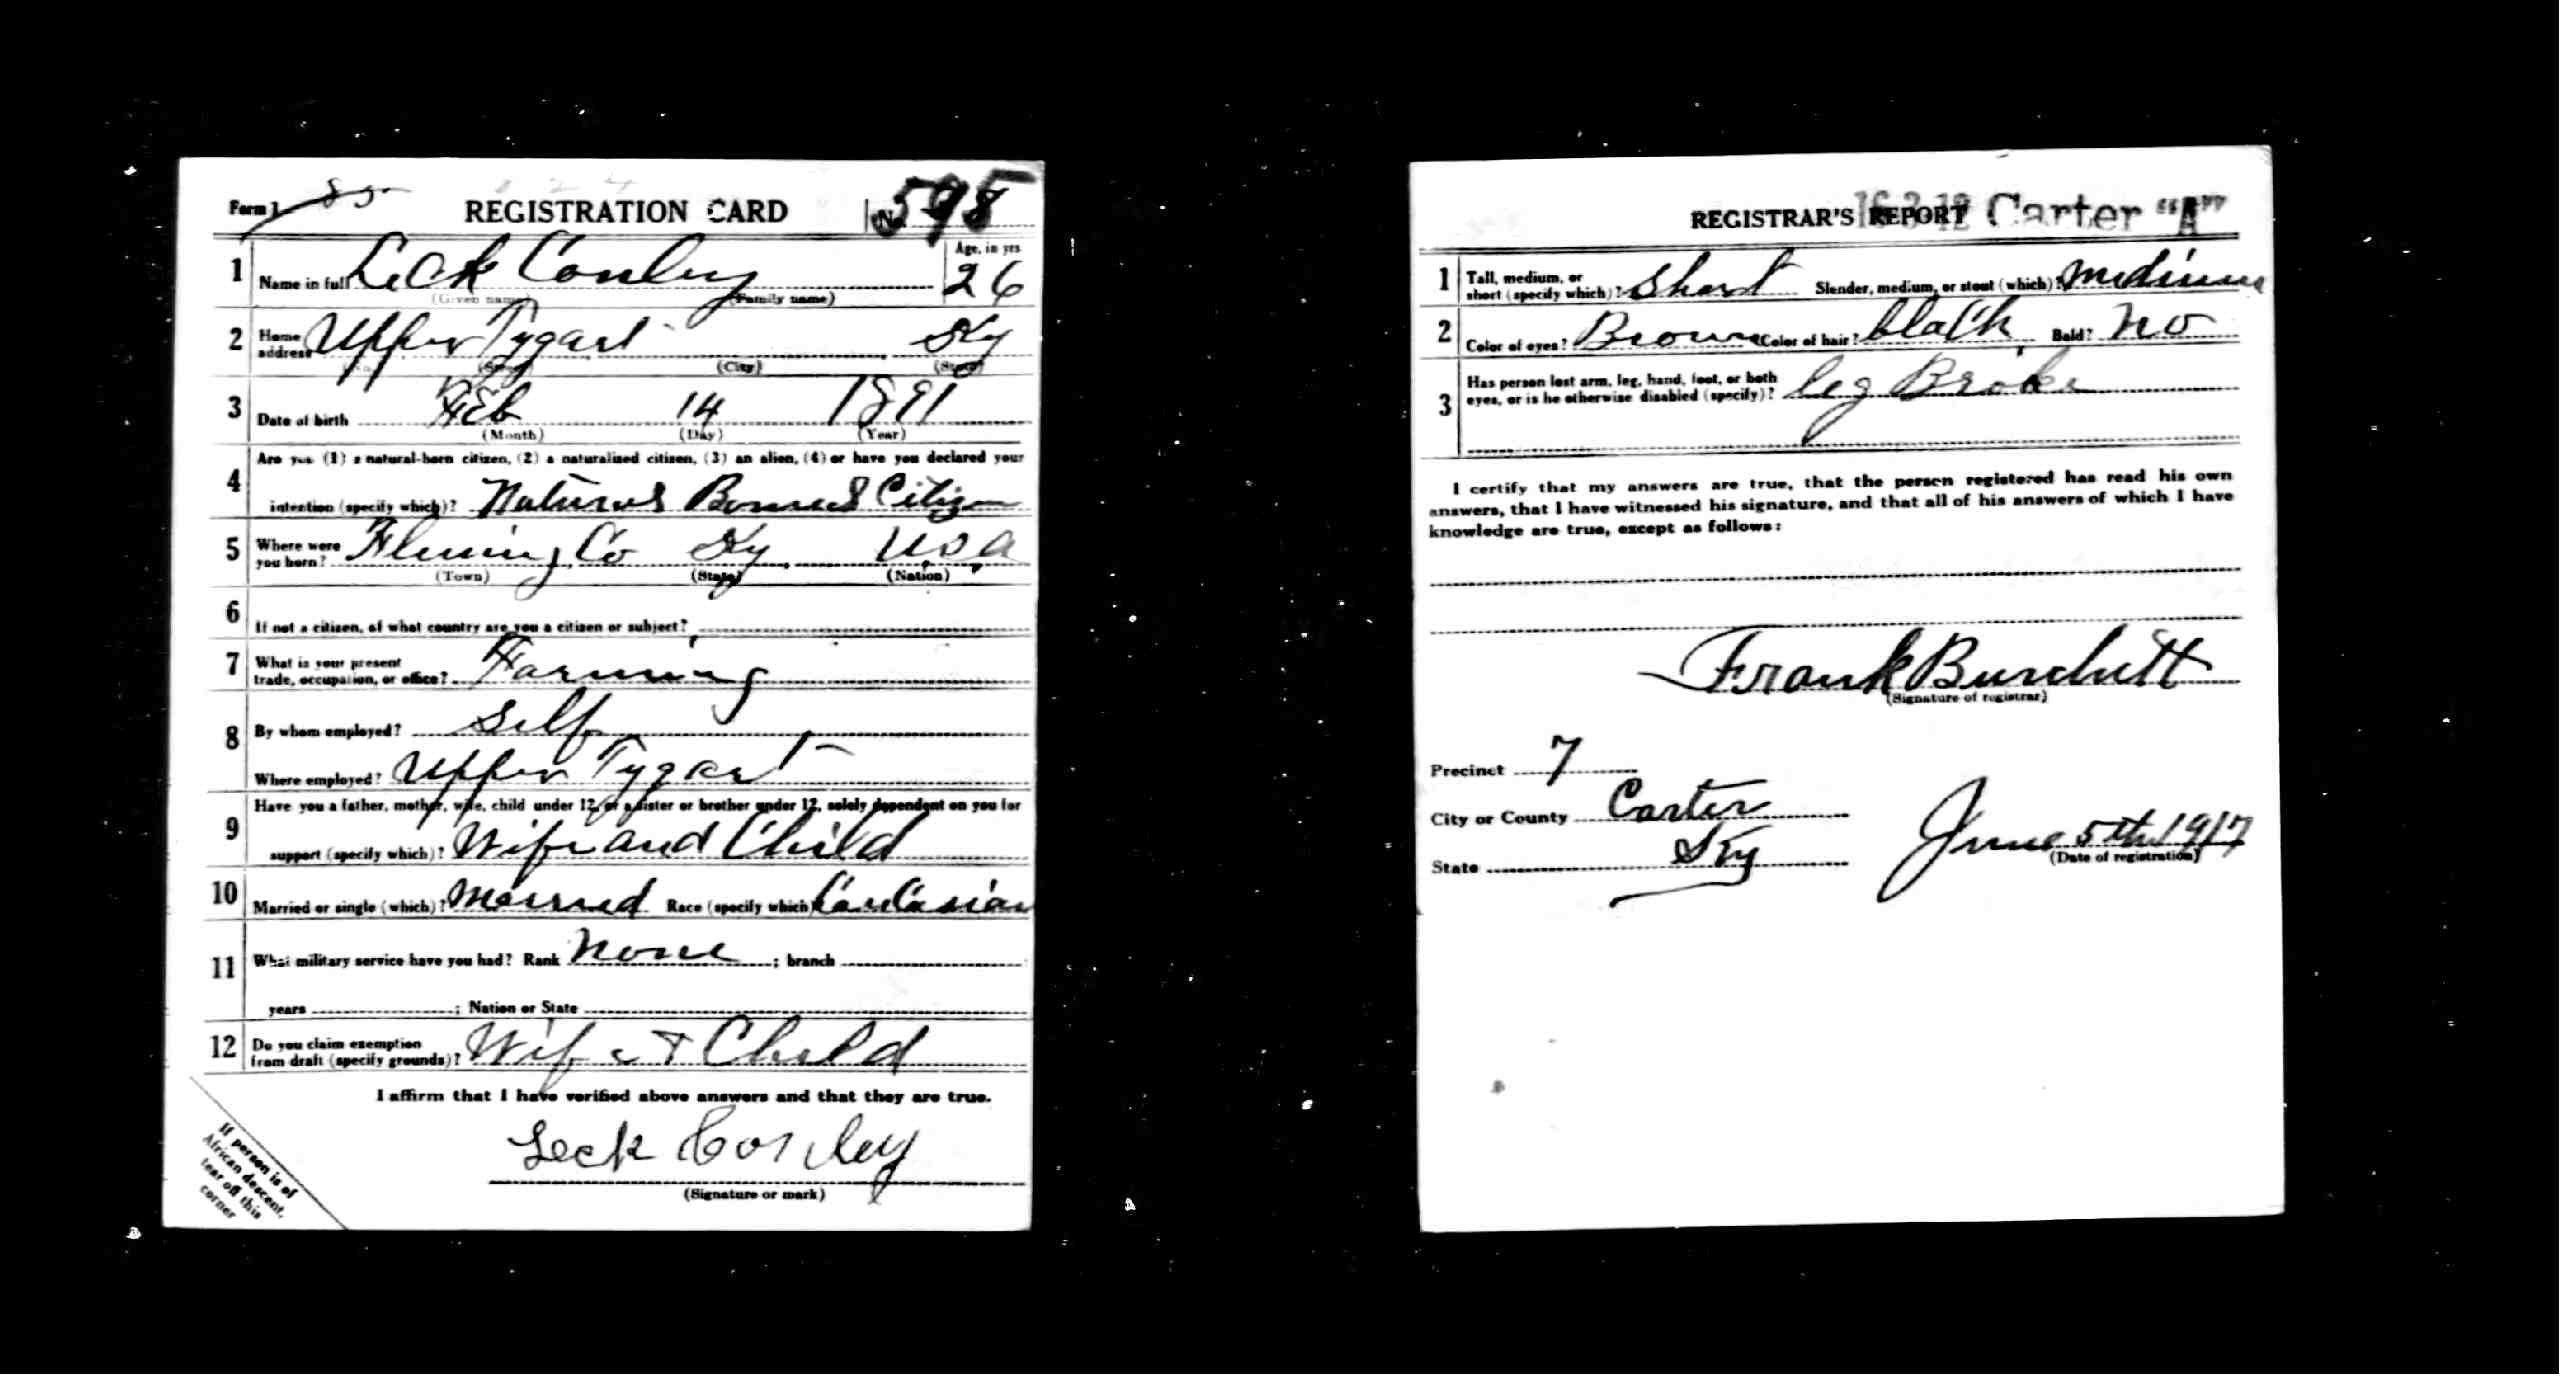 Form 1 85 REGISTRATION CARD No. 598
1 Name in full Leck Conley Age, in yrs 26
(Given name) (Family name)
2 Home address Upper Tygart Ky
(No.) (Street) (City) (State)
3 Date of birth Feb 14 1891
(Month) (Day) (Year)
4 Are you (1) a natural-born citizen, (2) a naturalized citizen, (3) an alien, (4) or have you declared your
intention (specify which)? Natural Borned Citizen
5 Where were you born? Fleming Co Ky U.S.A
(Town) (State) (Nation)
6 If not a citizen, of what country are you a citizen or subject?
7 What is your present
trade, occupation, or office? Farming
8 By whom employed? Self
Where employed? Upper Tygart
9 Have you a father, mother, wife, child under 12, or a sister or brother under 12, solely dependent on you for
support (specify which)? Wife and Child
10 Married or single (which)? Married Race (specify which) Caucasian
11 What military service have you had? Rank None ; branch
years ; Nation or State
12 Do you claim exemption
from draft (specify grounds)? Wife & Child
I affirm that I have verified above answers and that they are true.
Leck Conley
(Signature or mark)
If person is of
African descent,
tear off this
corner
REGISTRAR'S REPORT 16-3-12 Carter "A"
1 Tall, medium, or
short (specify which)? Short Slender, medium, or stout (which)? Medium
2 Color of eyes? Brown Color of hair? black Bald? No
3 Has person lost arm, leg, hand, foot, or both
eyes, or is he otherwise disabled (specify)? leg Broke
I certify that my answers are true, that the person registered has read his own
answers, that I have witnessed his signature, and that all of his answers of which I have
knowledge are true, except as follows:
Frank Burchett
(Signature of registrar)
Precinct 7
City or County Carter
State Ky June 5th 1917
(Date of registration)